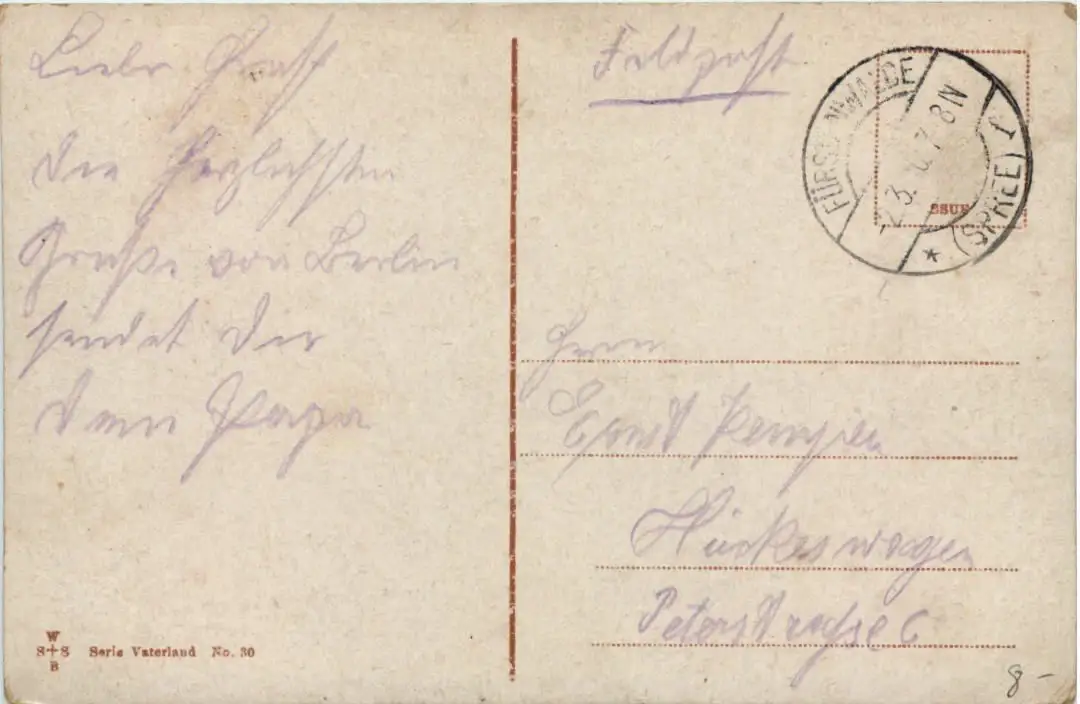 Lieber Ernst
Die herzlichsten
Grüße von Berlin
sendet Dir
Dein Papa
W
S+S
B
Serie Vaterland No. 30
Feldpost
FÜRSTENWALDE
(SPREE) 1
7. 8 N
Herrn
Ernst
Hückeswagen
Peterstrasse 6
8 -